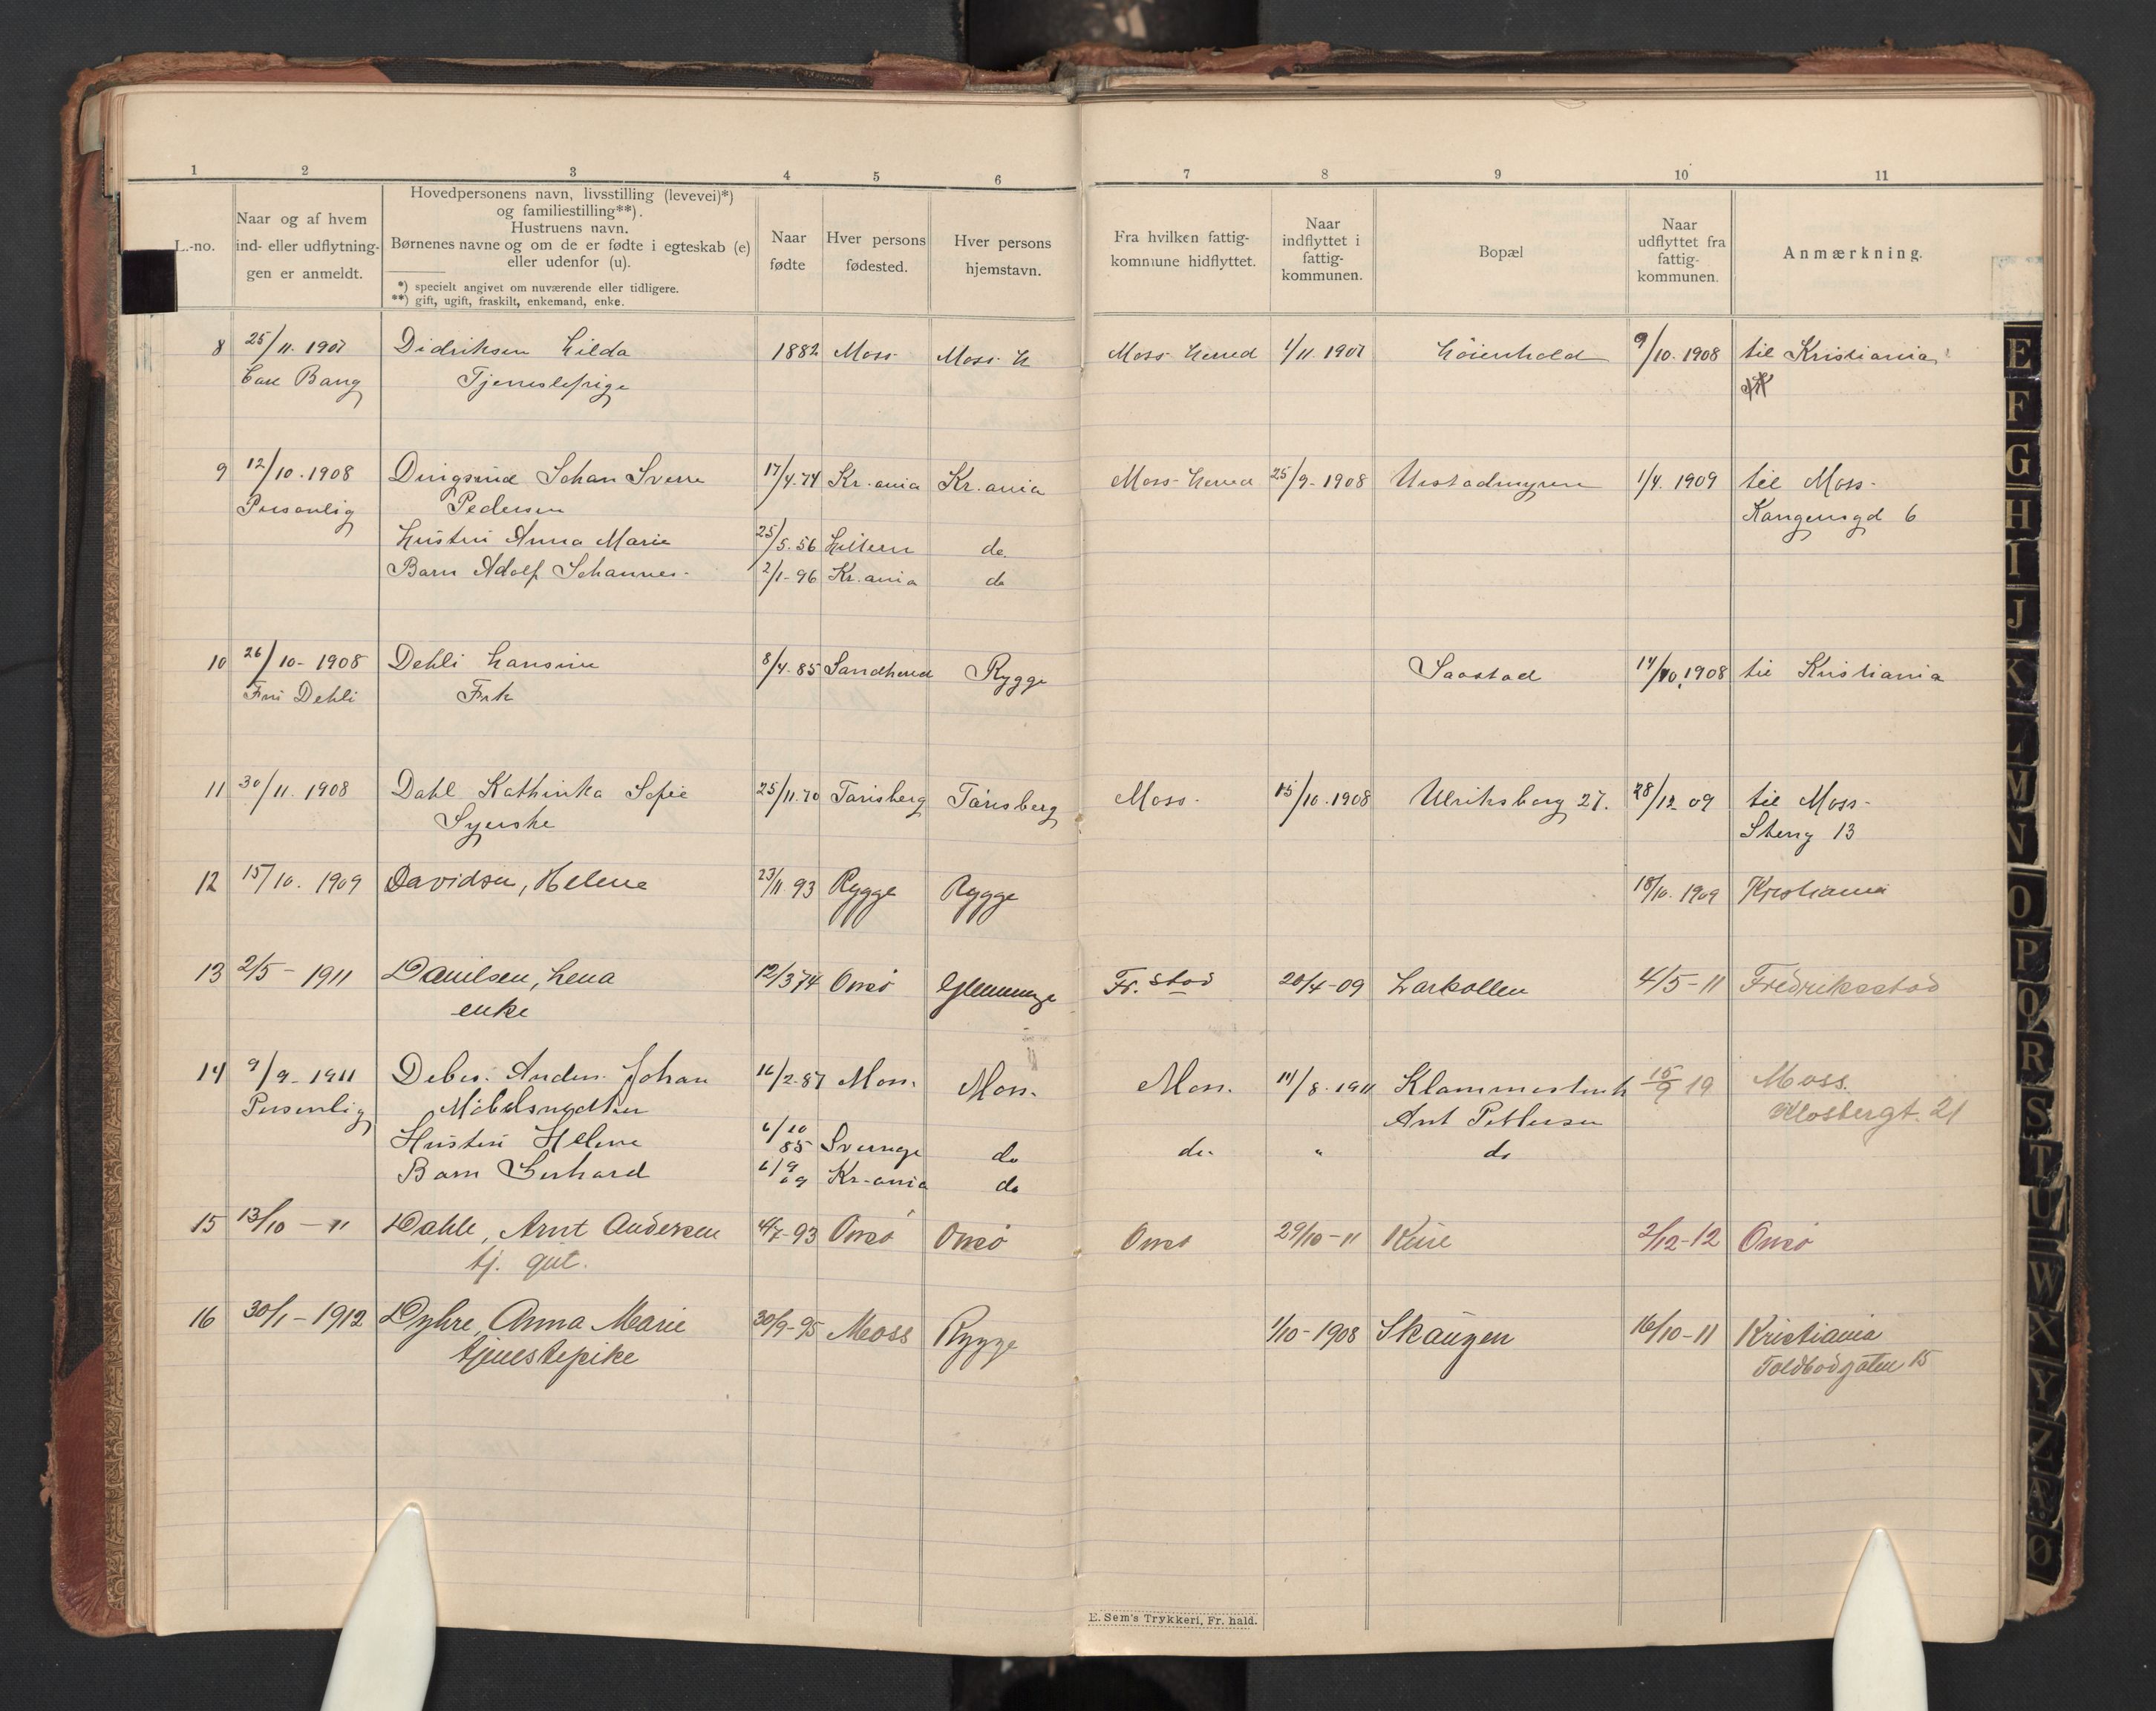 1 2 3 4 5 6 7 8 9 10 11
L.-no.
Naar og af hvem
ind- eller udflytnin-
gen er anmeldt.
Hovedpersonens navn, livsstilling (levevei)*)
og familiestilling**).
Hustruens navn.
Børnenes navne og om de er fødte i egteskab (e)
eller udenfor (u).
*) specielt angivet om nuværende eller tidligere.
**) gift, ugift, fraskilt, enkemand, enke.
Naar
fødte
Hver persons
fødested.
Hver persons
hjemstavn.
Fra hvilken fattig-
kommune hidflyttet.
Naar
indflyttet i
fattig-
kommunen.
Bopæl
Naar
udflyttet fra
fattig-
kommunen.
Anmærkning.
8 25/11. 1907 Didriksen Hilda 1882 Moss Moss H Moss Herred 1/11. 1907 Höienhold 9/10. 1908 til Kristiania
Carl Bang Tjenestepige
9 12/10. 1908 Johan Sverre 17/4.74 Kr.ania Kr.ania Moss Herred 25/9-1908 1/4. 1909 til Moss-
Personlig Pedersen 6
Hustru Anna Marie 25/5.56 do
Barn Adolf Johannes- 2/1-96 Kr.ania do
10 26/10-1908 Dehli Hansine 8/4.85 Rygge Saastad 14/10.1908 til Kristiania
Fru Dehli Frk
11 30/11. 1908 Dahl Kathinka Sofie 25/11.70 Moss- 15/10.1908 Ulriksborg 27. 28/12-09 til Moss-
Syerske 13
12 15/10. 1909 Davidsen, Helene 23/11 93 Rygge Rygge 18/10.1909 Kristiania
13 2/5-1911 Danielsen, Lena 12/3 74 Onsö Glemminge Fr.stad 20/4-09 Larkollen 4/5-11 Fredriksstad
enke
14 9/9-1911 Anders Johan 16/2-87 Moss. Moss. Moss. 11/8.1911 15/9 19 Moss.
Personlig Möbelsnedker Ant Pettersen 21
Hustru Helene 6/10 85 Sverige do do " do
Barn Gerhard 6/9 09 Kr-ania do
15 13/10-11 Dahle, Arnt Andersen 4/7-93 Onsö Onsö Onsö 29/10-11 2/12-12 Onsö
tj. gut.
16 30/1-1912 Dyhre, Anna Marie 30/9-95 Moss Rygge 1/10-1908 Skaugen 16/10-11 Kristiania
tjenestepike Toldbodgaten 15
E. Sem's Trykkeri, Fr. hald.
E
F
G
H
I
J
K
L
M
N
O
P
Q
R
S
T
U
W
X
Y
Z
Æ
Ø